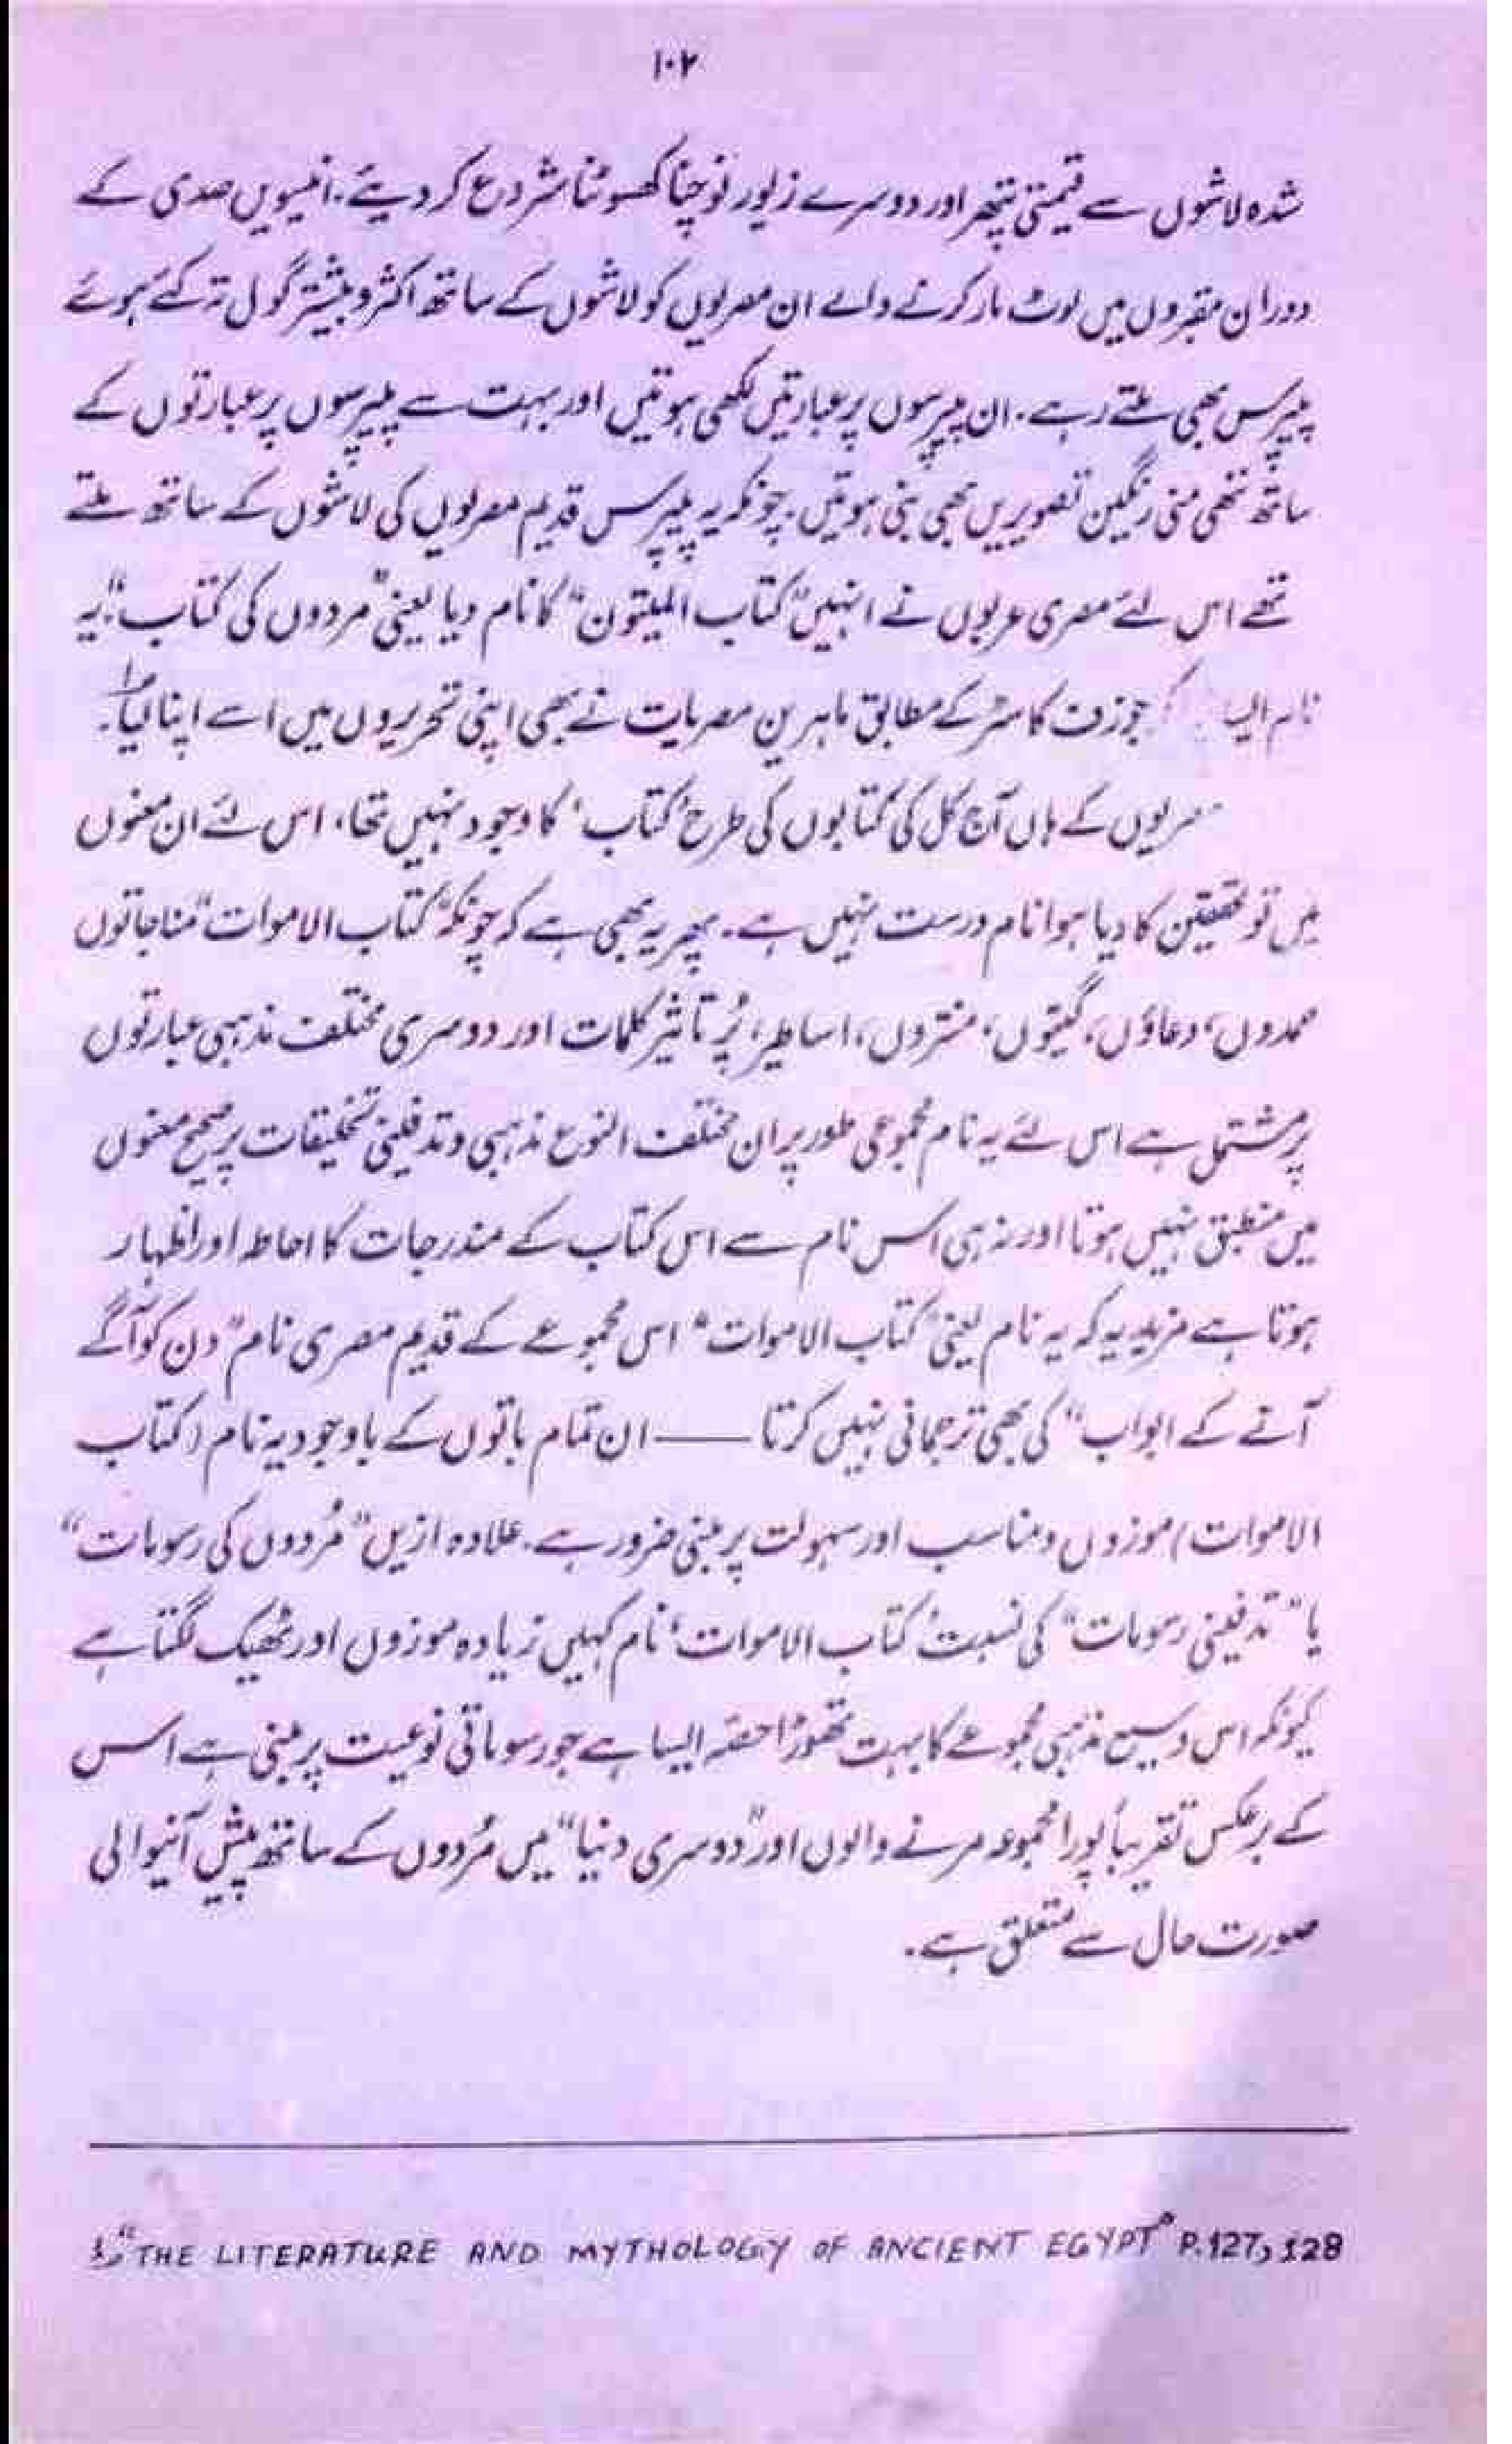 ۱۰۲
شدہ لاشوں سے قیمتی پتھر اور دوسرے زیور نوچنا کھسوٹنا شروع کر دیئے۔ انیسویں صدی کے
دوران مقبروں میں لوٹ مار کرنے والے ان مصریوں کو لاشوں کے ساتھ اکثر و بیشتر گول تہ کئے ہوئے
پیپرس بھی ملتے رہے۔ ان پیپرسوں پر عبارتیں لکھی ہوتیں اور بہت سے پیپرسوں پر عبارتوں کے
ساتھ ننھی منی رنگین تصویریں بھی بنی ہوتیں۔ چونکہ یہ پیپرس قدیم مصریوں کی لاشوں کے ساتھ ملتے
تھے اس لئے مصری عربوں نے انہیں "کتاب المیتون" کا نام دیا یعنی "مردوں کی کتاب"۔ یہ
نام ایسا کہ جوزف کاسٹر کے مطابق ماہرین مصریات نے بھی اپنی تحریروں میں اسے اپنا لیا۔؎۱
مصریوں کے ہاں آج کل کی کتابوں کی طرح 'کتاب' کا وجود نہیں تھا، اس لئے ان معنوں
میں تو محققین کا دیا ہوا نام درست نہیں ہے۔ پھر یہ بھی ہے کہ چونکہ "کتاب الاموات" مناجاتوں
حمدوں، دعاؤں، گیتوں، منتروں، اساطیر، پُر تاثیر کلمات اور دوسری مختلف مذہبی عبارتوں
پر مشتمل ہے اس لئے یہ نام مجموعی طور پر ان مختلف النوع مذہبی و تدفینی تخلیقات پر صحیح معنوں
میں منطبق نہیں ہوتا اور نہ ہی اس نام سے اس کتاب کے مندرجات کا احاطہ اور اظہار
ہوتا ہے مزید یہ کہ یہ نام یعنی "کتاب الاموات" اس مجموعے کے قدیم مصری نام "دن کو آگے
آنے کے ابواب" کی بھی ترجمانی نہیں کرتا —— ان تمام باتوں کے باوجود یہ نام (کتاب
الاموات) موزوں و مناسب اور سہولت پر مبنی ضرور ہے۔ علاوہ ازیں "مُردوں کی رسومات"
یا "تدفینی رسومات" کی نسبت 'کتاب الاموات' نام کہیں زیادہ موزوں اور ٹھیک لگتا ہے
کیونکہ اس وسیع مذہبی مجموعے کا بہت تھوڑا حصہ ایسا ہے جو رسوماتی نوعیت پر مبنی ہے اس
کے برعکس تقریباً پورا مجموعہ مرنے والوں اور "دوسری دنیا" میں مُردوں کے ساتھ پیش آنیوالی
صورت حال سے متعلق ہے۔
؎۱ "THE LITERATURE AND MYTHOLOGY OF ANCIENT EGYPT" P.127, 128